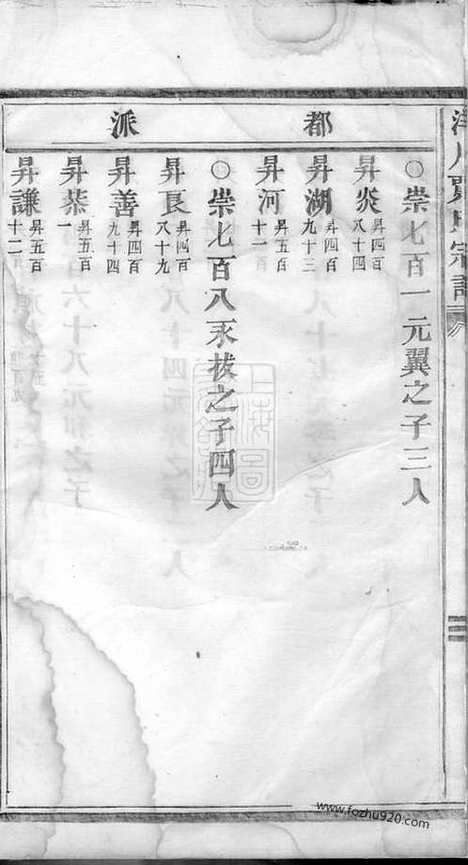 都派
○崇七百一元翼之子三人
昇炎 昇四百八十四
昇湖 昇四百九十三
昇河 昇五百十一
○崇七百八永拔之子四人
昇良 昇四百八十九
昇善 昇四百九十四
昇恭 昇五百一
昇謙 昇五百十二
www.fozhu920.com